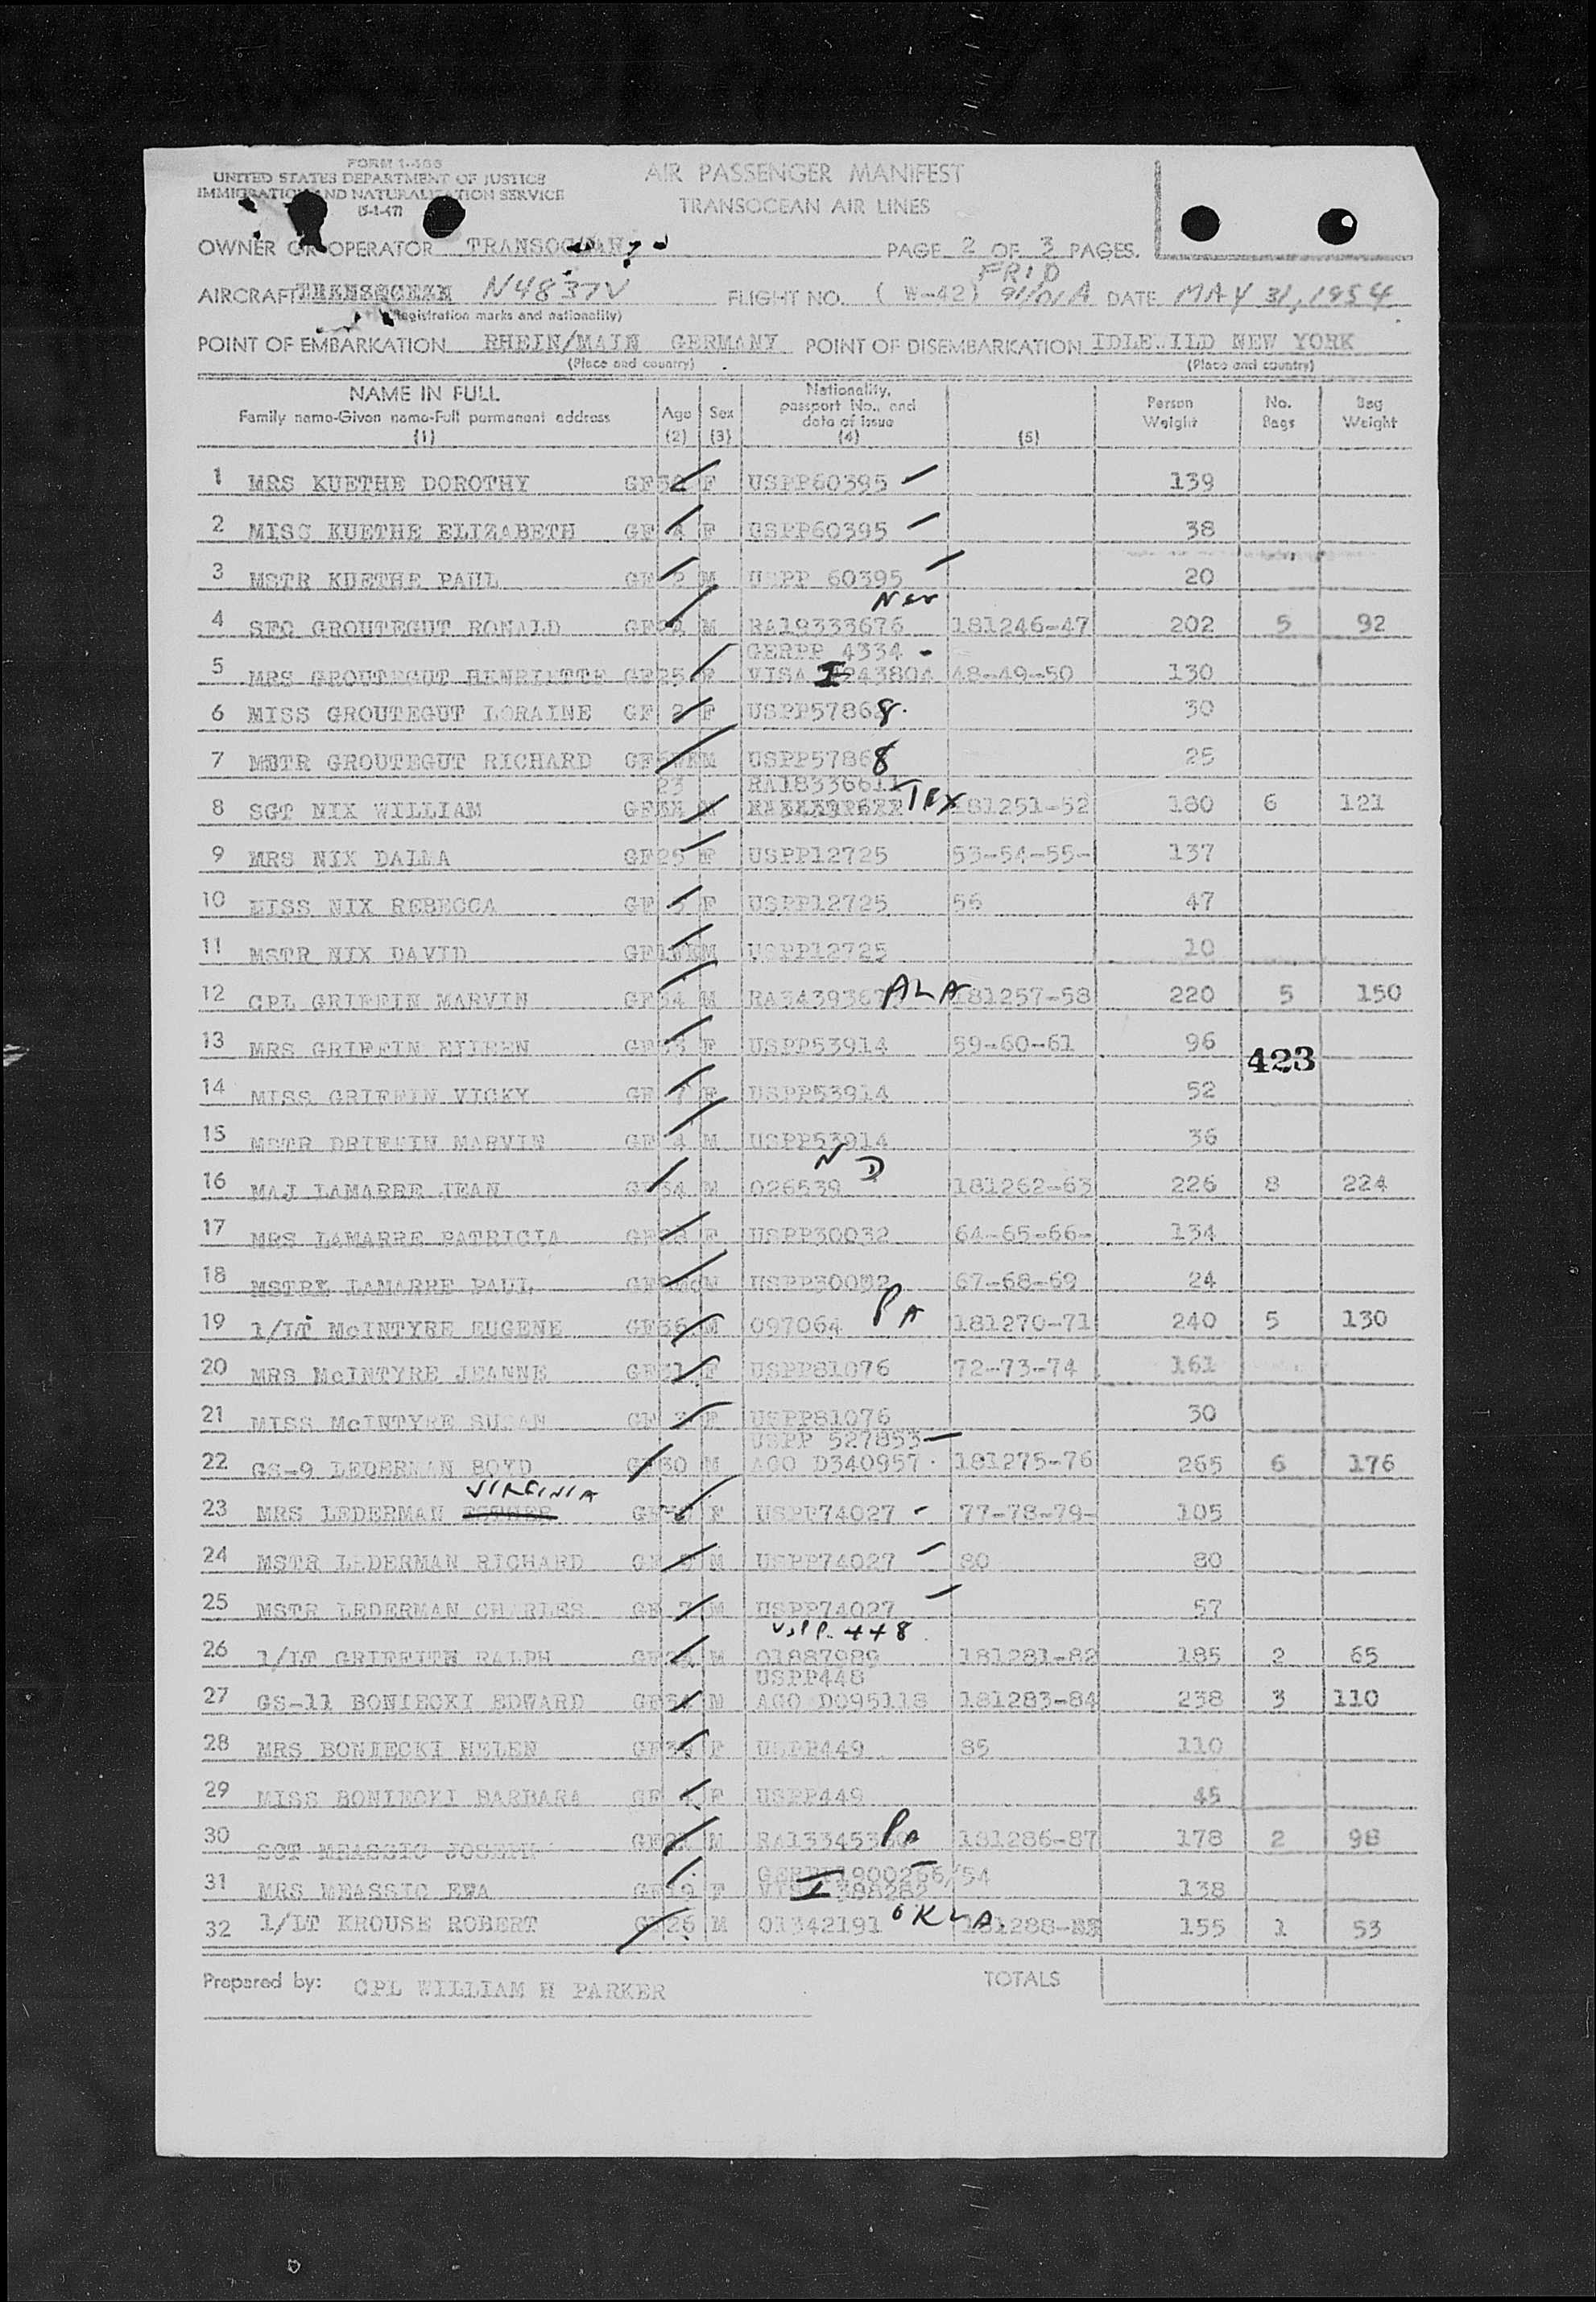 FORM I-466
UNITED STATES DEPARTMENT OF JUSTICE
IMMIGRATION AND NATURALIZATION SERVICE
(5-1-47)
AIR PASSENGER MANIFEST
TRANSOCEAN AIR LINES
OWNER OR OPERATOR TRANSOCEAN PAGE 2 OF 3 PAGES.
FRID
AIRCRAFT N4837V FLIGHT NO. (W-42) DATE MAY 31, 1954
(Registration marks and nationality)
POINT OF EMBARKATION RHEIN/MAIN GERMANY POINT OF DISEMBARKATION IDLEWILD NEW YORK
(Place and country) (Place and country)
NAME IN FULL Family name-Given name-Full permanent address (1) Age (2) Sex (3) Nationality, passport No., and date of issue (4) (5) Person Weight No. Bags Bag Weight
1 MRS KUETHE DOROTHY GF F USPP60395 139
2 MISS KUETHE ELIZABETH GF 4 F USPP60395 38
3 MSTR KUETHE PAUL GF 2 M USPP 60395 20
4 SFC GROUTEGUT RONALD GF M RA19333676 Nev 181246-47 202 5 92
GERPP 4334
5 MRS GROUTEGUT HENRIETTE GF 25 F VISA I 243804 48-49-50 130
6 MISS GROUTEGUT LORAINE GF 2 F USPP57868 30
7 MSTR GROUTEGUT RICHARD GF M USPP57868 25
23 RA18336611
8 SGT NIX WILLIAM GF M TEX 181251-52 180 6 121
9 MRS NIX DALMA GF 25 F USPP12725 53-54-55- 137
10 MISS NIX REBECCA GF F USPP12725 56 47
11 MSTR NIX DAVID GF M USPP12725 10
12 CPL GRIFFIN MARVIN GF 34 M ALA 181257-58 220 5 150
13 MRS GRIFFIN EILEEN GF F USPP53914 59-60-61 96
423
14 MISS GRIFFIN VICKY GF 7 F USPP53914 52
15 MSTR DRIFFIN MARVIN GF 4 M USPP53914 36
16 MAJ LAMARRE JEAN GF 34 M 026539 ND 181262-63 226 8 224
17 MRS LAMARRE PATRICIA GF F USPP30032 64-65-66- 134
18 MSTRX LAMARRE PAUL GF M USPP30032 67-68-69 24
19 1/LT McINTYRE EUGENE GF 36 M 097064 PA 181270-71 240 5 130
20 MRS McINTYRE JEANNE GF 31 F USPP81076 72-73-74 161
21 MISS McINTYRE SUSAN GF F USPP81076 30
USPP 527853
22 GS-9 LEDERMAN BOYD GF 30 M AGO D340957 181275-76 265 6 176
VIRGINIA
23 MRS LEDERMAN GF F USPP74027 77-78-79- 105
24 MSTR LEDERMAN RICHARD GF 9 M USPP74027 80 80
25 MSTR LEDERMAN CHARLES GF 7 M USPP74027 57
USPP 448
26 1/LT GRIFFITH RALPH GF M 01887989 181281-82 185 2 65
USPP448
27 GS-11 BONIECKI EDWARD GF 34 M AGO D095118 181283-84 238 3 110
28 MRS BONIECKI HELEN GF F USPP449 85 110
29 MISS BONIECKI BARBARA GF F USPP449 45
30 SGT MEASSIC JOSEPH GF M Pa 181286-87 178 2 98
31 MRS MEASSIC EWA GF 19 F 138
32 1/LT KROUSE ROBERT GF 26 M 01342191 OKLA 155 1 53
Prepared by: CPL WILLIAM H PARKER TOTALS